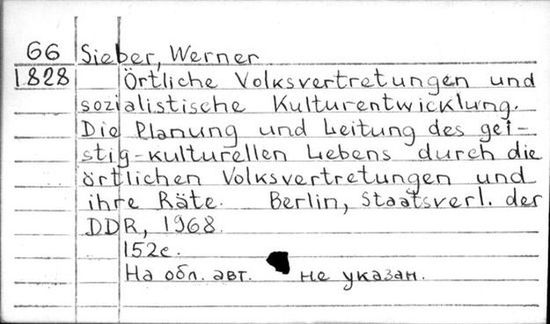 66 Sieber, Werner
1828 Örtliche Volksvertretungen und
sozialistische Kulturentwicklung.
Die Planung und Leitung des gei-
stig-kulturellen Lebens durch die
örtlichen Volksvertretungen und
ihre Räte. Berlin, Staatsverl. der
DDR, 1968.
152с.
На обл. авт. не указан.